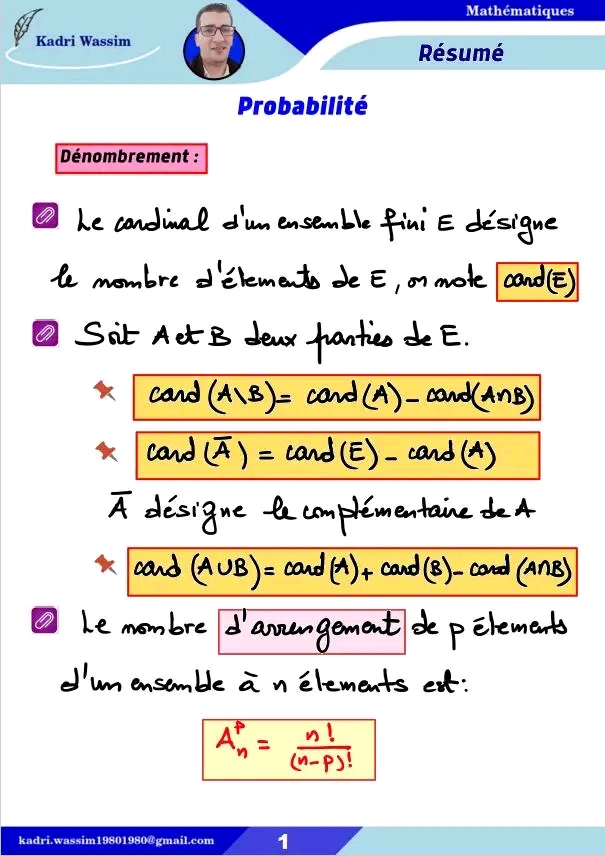 Mathématiques
Kadri Wassim
Résumé
Probabilité
Dénombrement :
Le cardinal d'un ensemble fini E désigne
le nombre d'élements de E, on note card(E)
Soit A et B deux parties de E.
card (A\B) = card (A) - card(A∩B)
card (Ā) = card (E) - card (A)
Ā désigne le complémentaire de A
card (A∪B) = card (A) + card (B) - card (A∩B)
Le nombre d'arrengement de p élements
d'un ensemble à n élements est:
Aₙᵖ = n! / (n-p)!
kadri.wassim19801980@gmail.com
1